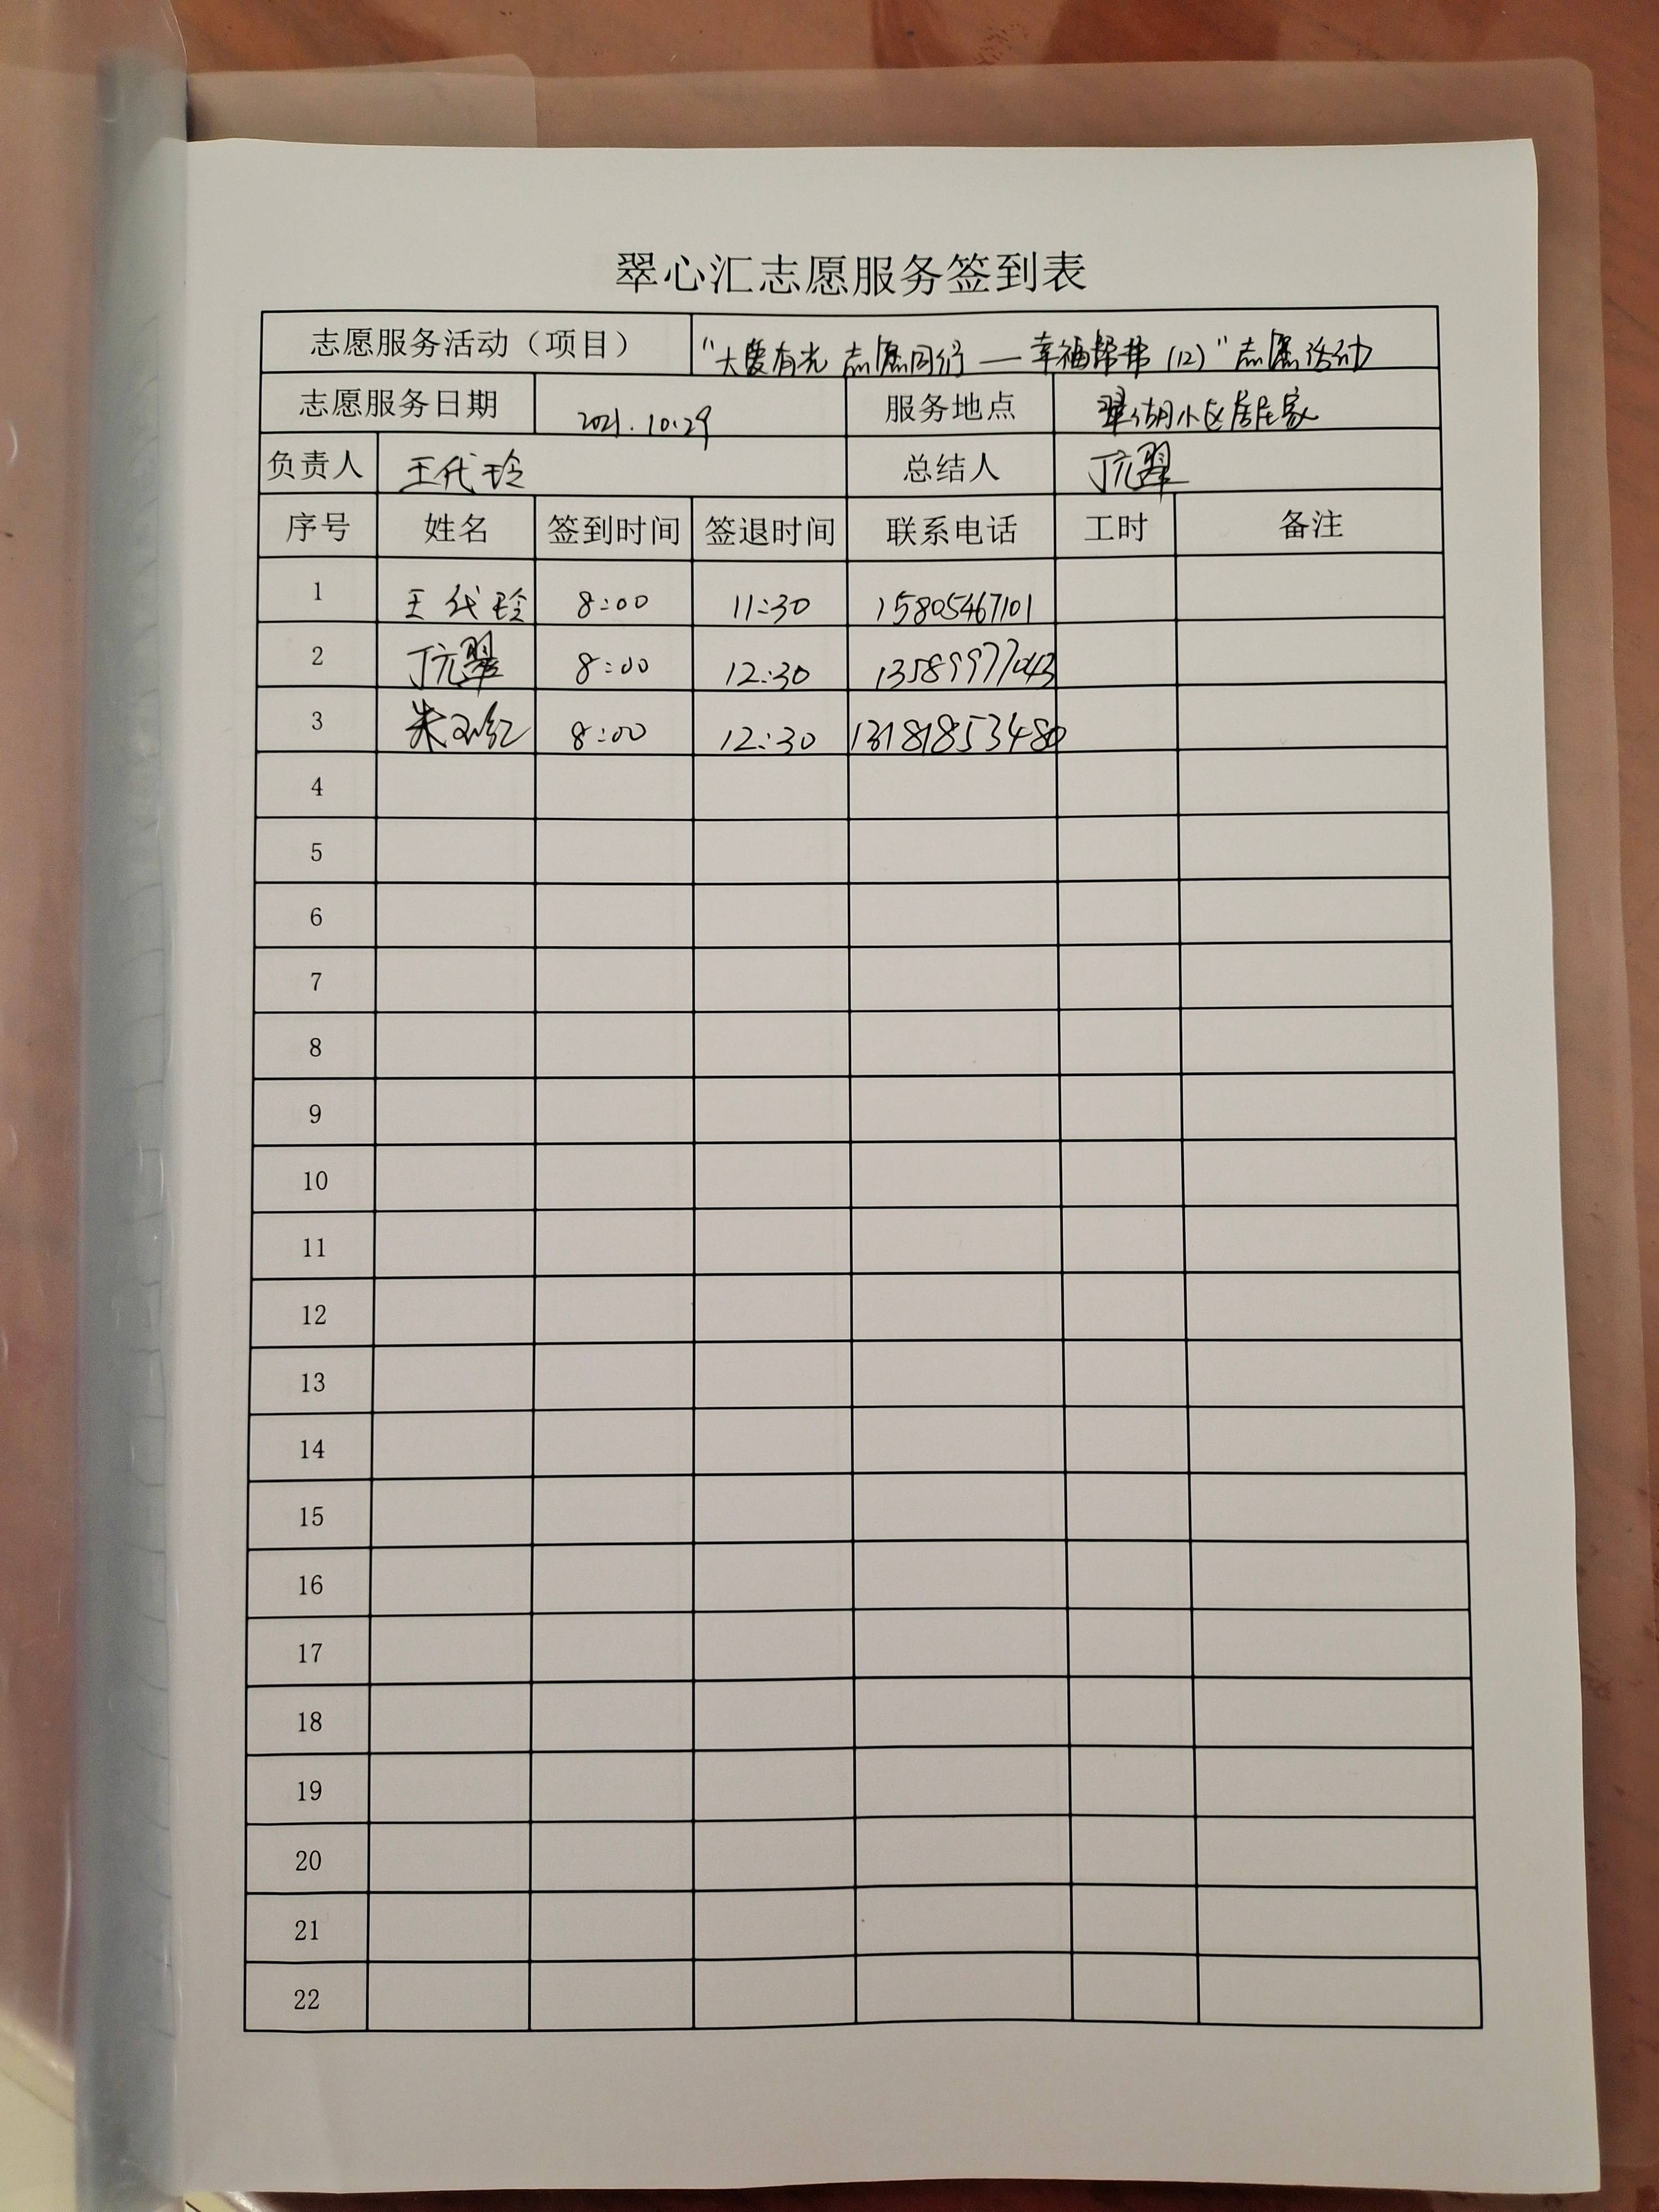 翠心汇志愿服务签到表
志愿服务活动（项目） “大爱有光 志愿同行—幸福帮帮（12）”志愿活动
志愿服务日期 2021.10.29 服务地点 翠湖小区居民家
负责人 王代玲 总结人 丁亢翠
序号 姓名 签到时间 签退时间 联系电话 工时 备注
1 王代玲 8:00 11:30 15805467101
2 丁亢翠 8:00 12:30 13589977043
3 朱 8:00 12:30 13181853480
4
5
6
7
8
9
10
11
12
13
14
15
16
17
18
19
20
21
22